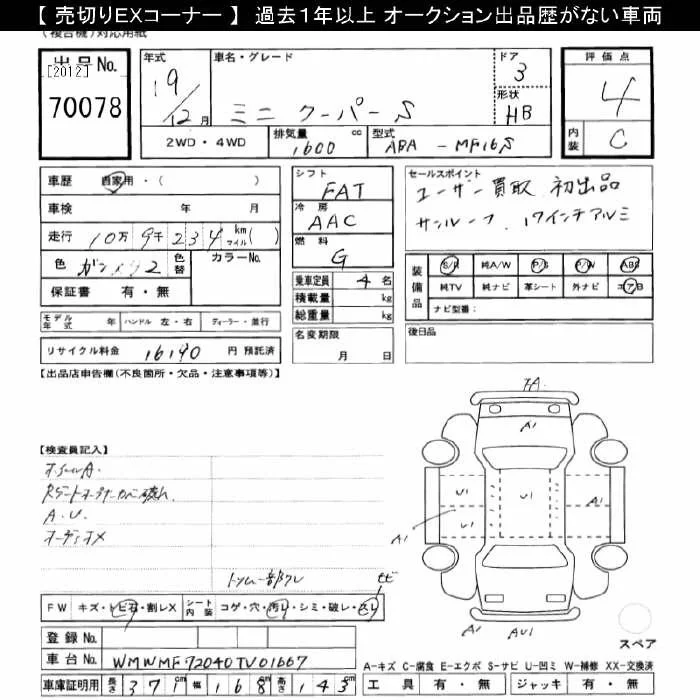 【 売切りEXコーナー 】 過去1年以上 オークション出品歴がない車両
(複合機)対応用紙
出品No.
[2012]
70078
年式
19/12月
車名・グレード
ミニ クーパーS
ドア
3
形状
HB
2WD・4WD
排気量
1600 cc
型式
ABA - MF16S
評価点
4
内装
C
車歴 自家用・( )
車検 年 月
走行 10万 9千 2 3 4 km マイル( )
色 ガンメリ2 色替 カラーNo.
保証書 有・無
シフト
FAT
冷房
AAC
燃料
G
乗車定員 4 名
積載量 kg
総重量 kg
セールスポイント
ユーザー買取 初出品
サンルーフ. 17インチアルミ
装備品
S/R 純A/W P/S P/W ABS
純TV 純ナビ 革シート 外ナビ エアB
ナビ型番:
モデル年式 年 ハンドル 左・右 ディーラー・並行
リサイクル料金 16190 円 預託済
名変期限
月 日
後日品
【出品店申告欄(不良箇所・欠品・注意事項等)】
【検査員記入】
A.U.
オーディオメ
トリム一部クレ
FW キズ・トビ石・割レX シート内装 コゲ・穴・汚レ・シミ・破レ・スレ
登録No.
車台No. WMWMF72040TV01667
車庫証明用 長さ 371cm 幅 168cm 高さ 143cm
A1
U1
U1
U1
A1
A1
A1
AU1
スペア
A-キズ C-腐食 E-エクボ S-サビ U-凹ミ W-補修 XX-交換済
工具 有・無 ジャッキ 有・無